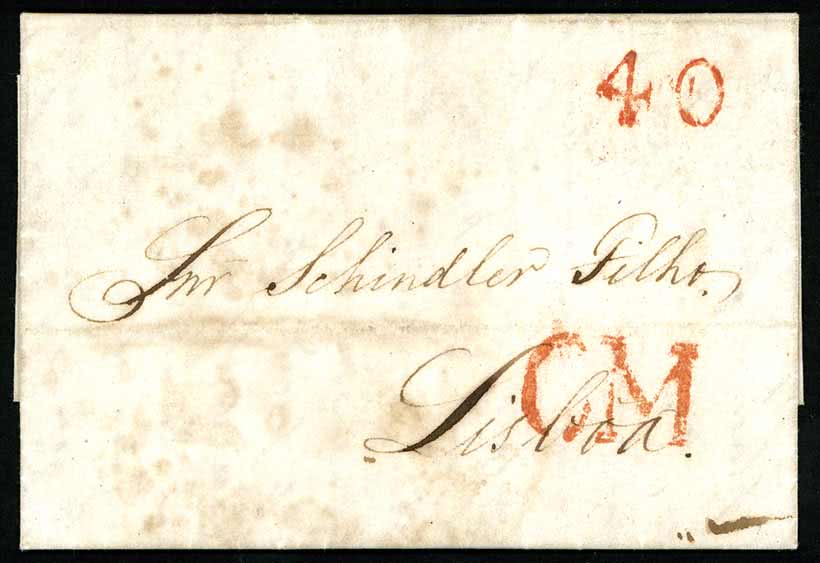 40
Snr Schindler Filho.
CM
Lisboa.